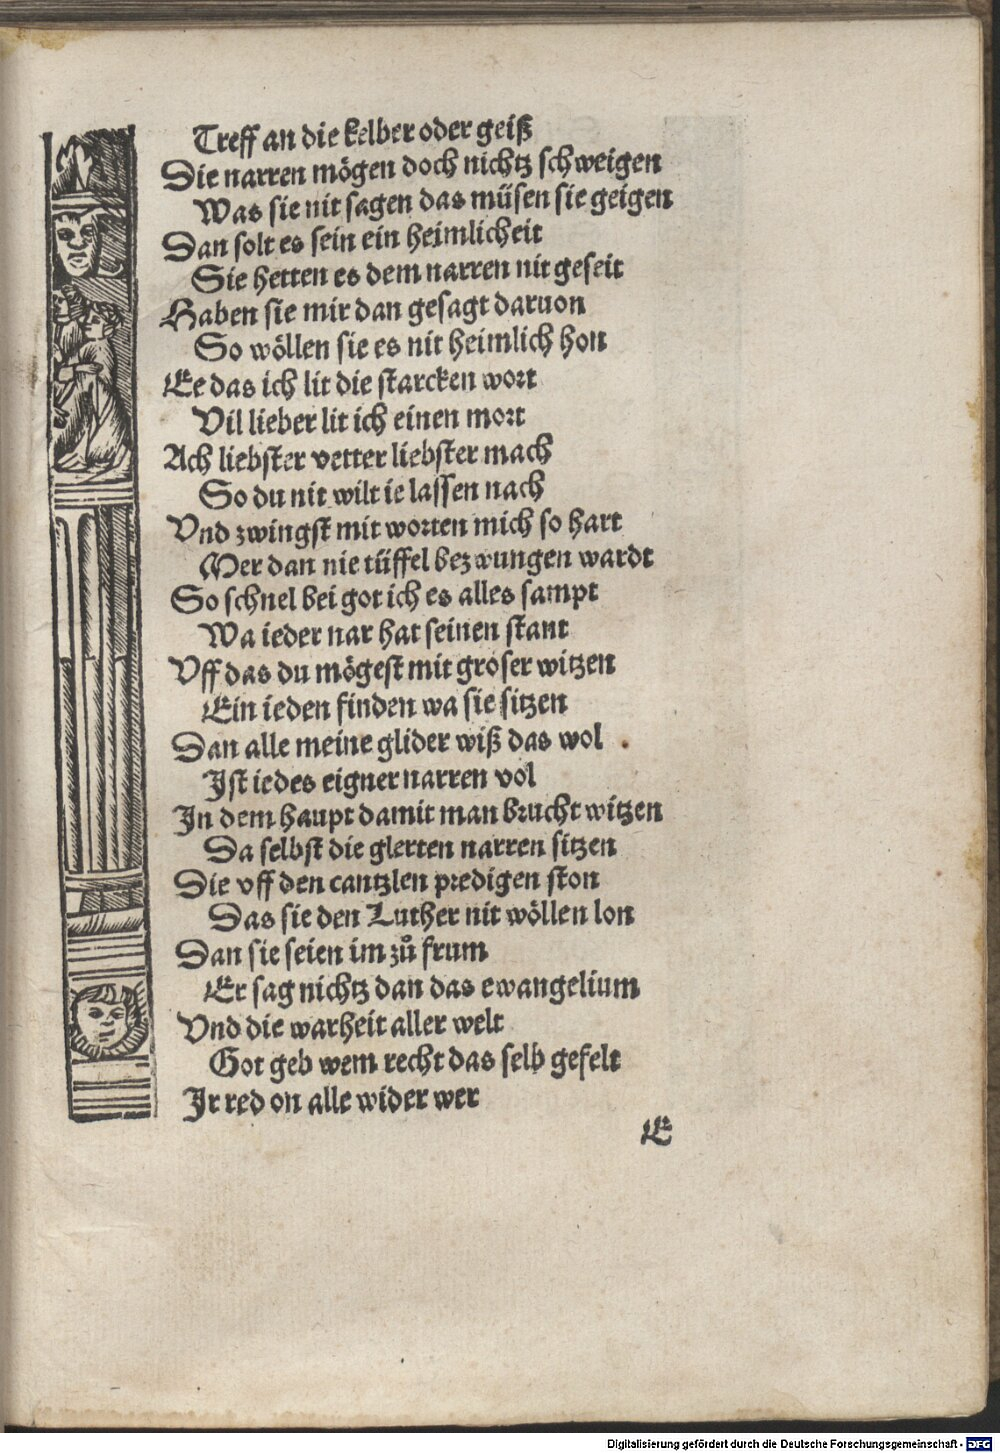 Treff an die kelber oder geiß
Die narren mögen doch nichtz schweigen
Was sie nit sagen das müsen sie geigen
Dan solt es sein ein heimlicheit
Sie hetten es dem narren nit geseit
Haben sie mir dan gesagt daruon
So wöllen sie es nit heimlich hon
Ee das ich lit die starcken wort
Vil lieber lit ich einen mort
Ach liebster vetter liebster mach
So du nit wilt ie lassen nach
Vnd zwingst mit worten mich so hart
Mer dan nie tüffel bezwungen wardt
So schnel bei got ich es alles sampt
Wa ieder nar hat seinen stant
Vff das du mögest mit groser witzen
Ein ieden finden wa sie sitzen
Dan alle meine glider wiß das wol .
Ist iedes eigner narren vol
In dem haupt damit man brucht witzen
Da selbst die glerten narren sitzen
Die vff den cantzlen predigen ston
Das sie den Luther nit wöllen lon
Dan sie seien im zů frum
Er sag nichtz dan das ewangelium
Vnd die warheit aller welt
Got geb wem recht das selb gefelt
Ir red on alle wider wer
E
Digitalisierung gefördert durch die Deutsche Forschungsgemeinschaft - DFG